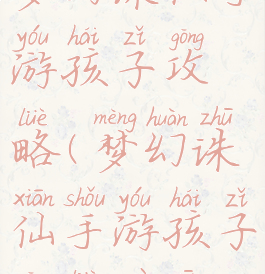 yóu hái zǐ gōng
游孩子攻
lüè mèng huàn zhū
略(梦幻诛
xiān shǒu yóu hái zǐ
仙手游孩子